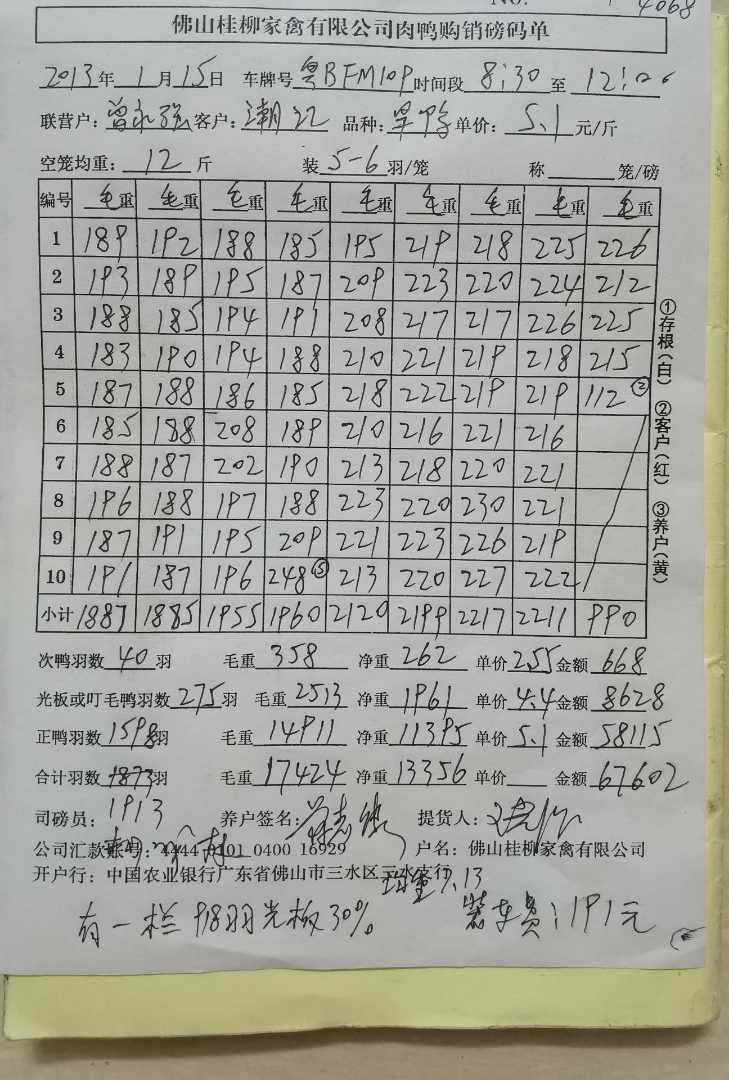 NO. 4068
佛山桂柳家禽有限公司肉鸭购销磅码单
2013年 1月 15日 车牌号 粤BFM109 时间段 8:30 至 12:00
联营户: 曾永强 客户: 潮江 品种: 旱鸭 单价: 5.1 元/斤
空笼均重: 12 斤 装 5-6 羽/笼 称 笼/磅
编号 毛重 毛重 毛重 毛重 毛重 毛重 毛重 毛重 毛重
1 189 192 188 185 195 219 218 225 226
2 193 189 195 187 209 223 220 224 212
3 188 185 194 191 208 217 217 226 225
4 183 190 194 188 210 221 219 218 215
5 187 188 186 185 218 222 219 219 112②
6 185 188 208 189 210 216 221 216
7 188 187 202 190 213 218 220 221
8 196 188 197 188 223 220 230 221
9 187 191 195 209 221 223 226 219
10 191 187 196 248⑤ 213 220 227 222
小计 1887 1885 1955 1960 2120 2199 2217 2211 990
①存根(白) ②客户(红) ③养户(黄)
次鸭羽数 40 羽 毛重 358 净重 262 单价 2.55 金额 668
光板或叮毛鸭羽数 275 羽 毛重 2513 净重 1961 单价 4.4 金额 8628
正鸭羽数 1598 羽 毛重 14911 净重 11395 单价 5.1 金额 58115
合计羽数 1873 羽 毛重 17424 净重 13356 单价 金额 67602
司磅员: 1913 养户签名: 提货人:
公司汇款账号: 4444 0101 0400 16929 户名: 佛山桂柳家禽有限公司
开户行: 中国农业银行广东省佛山市三水区三水支行
均重7.13
有一栏918羽光板30% 装车费:191元